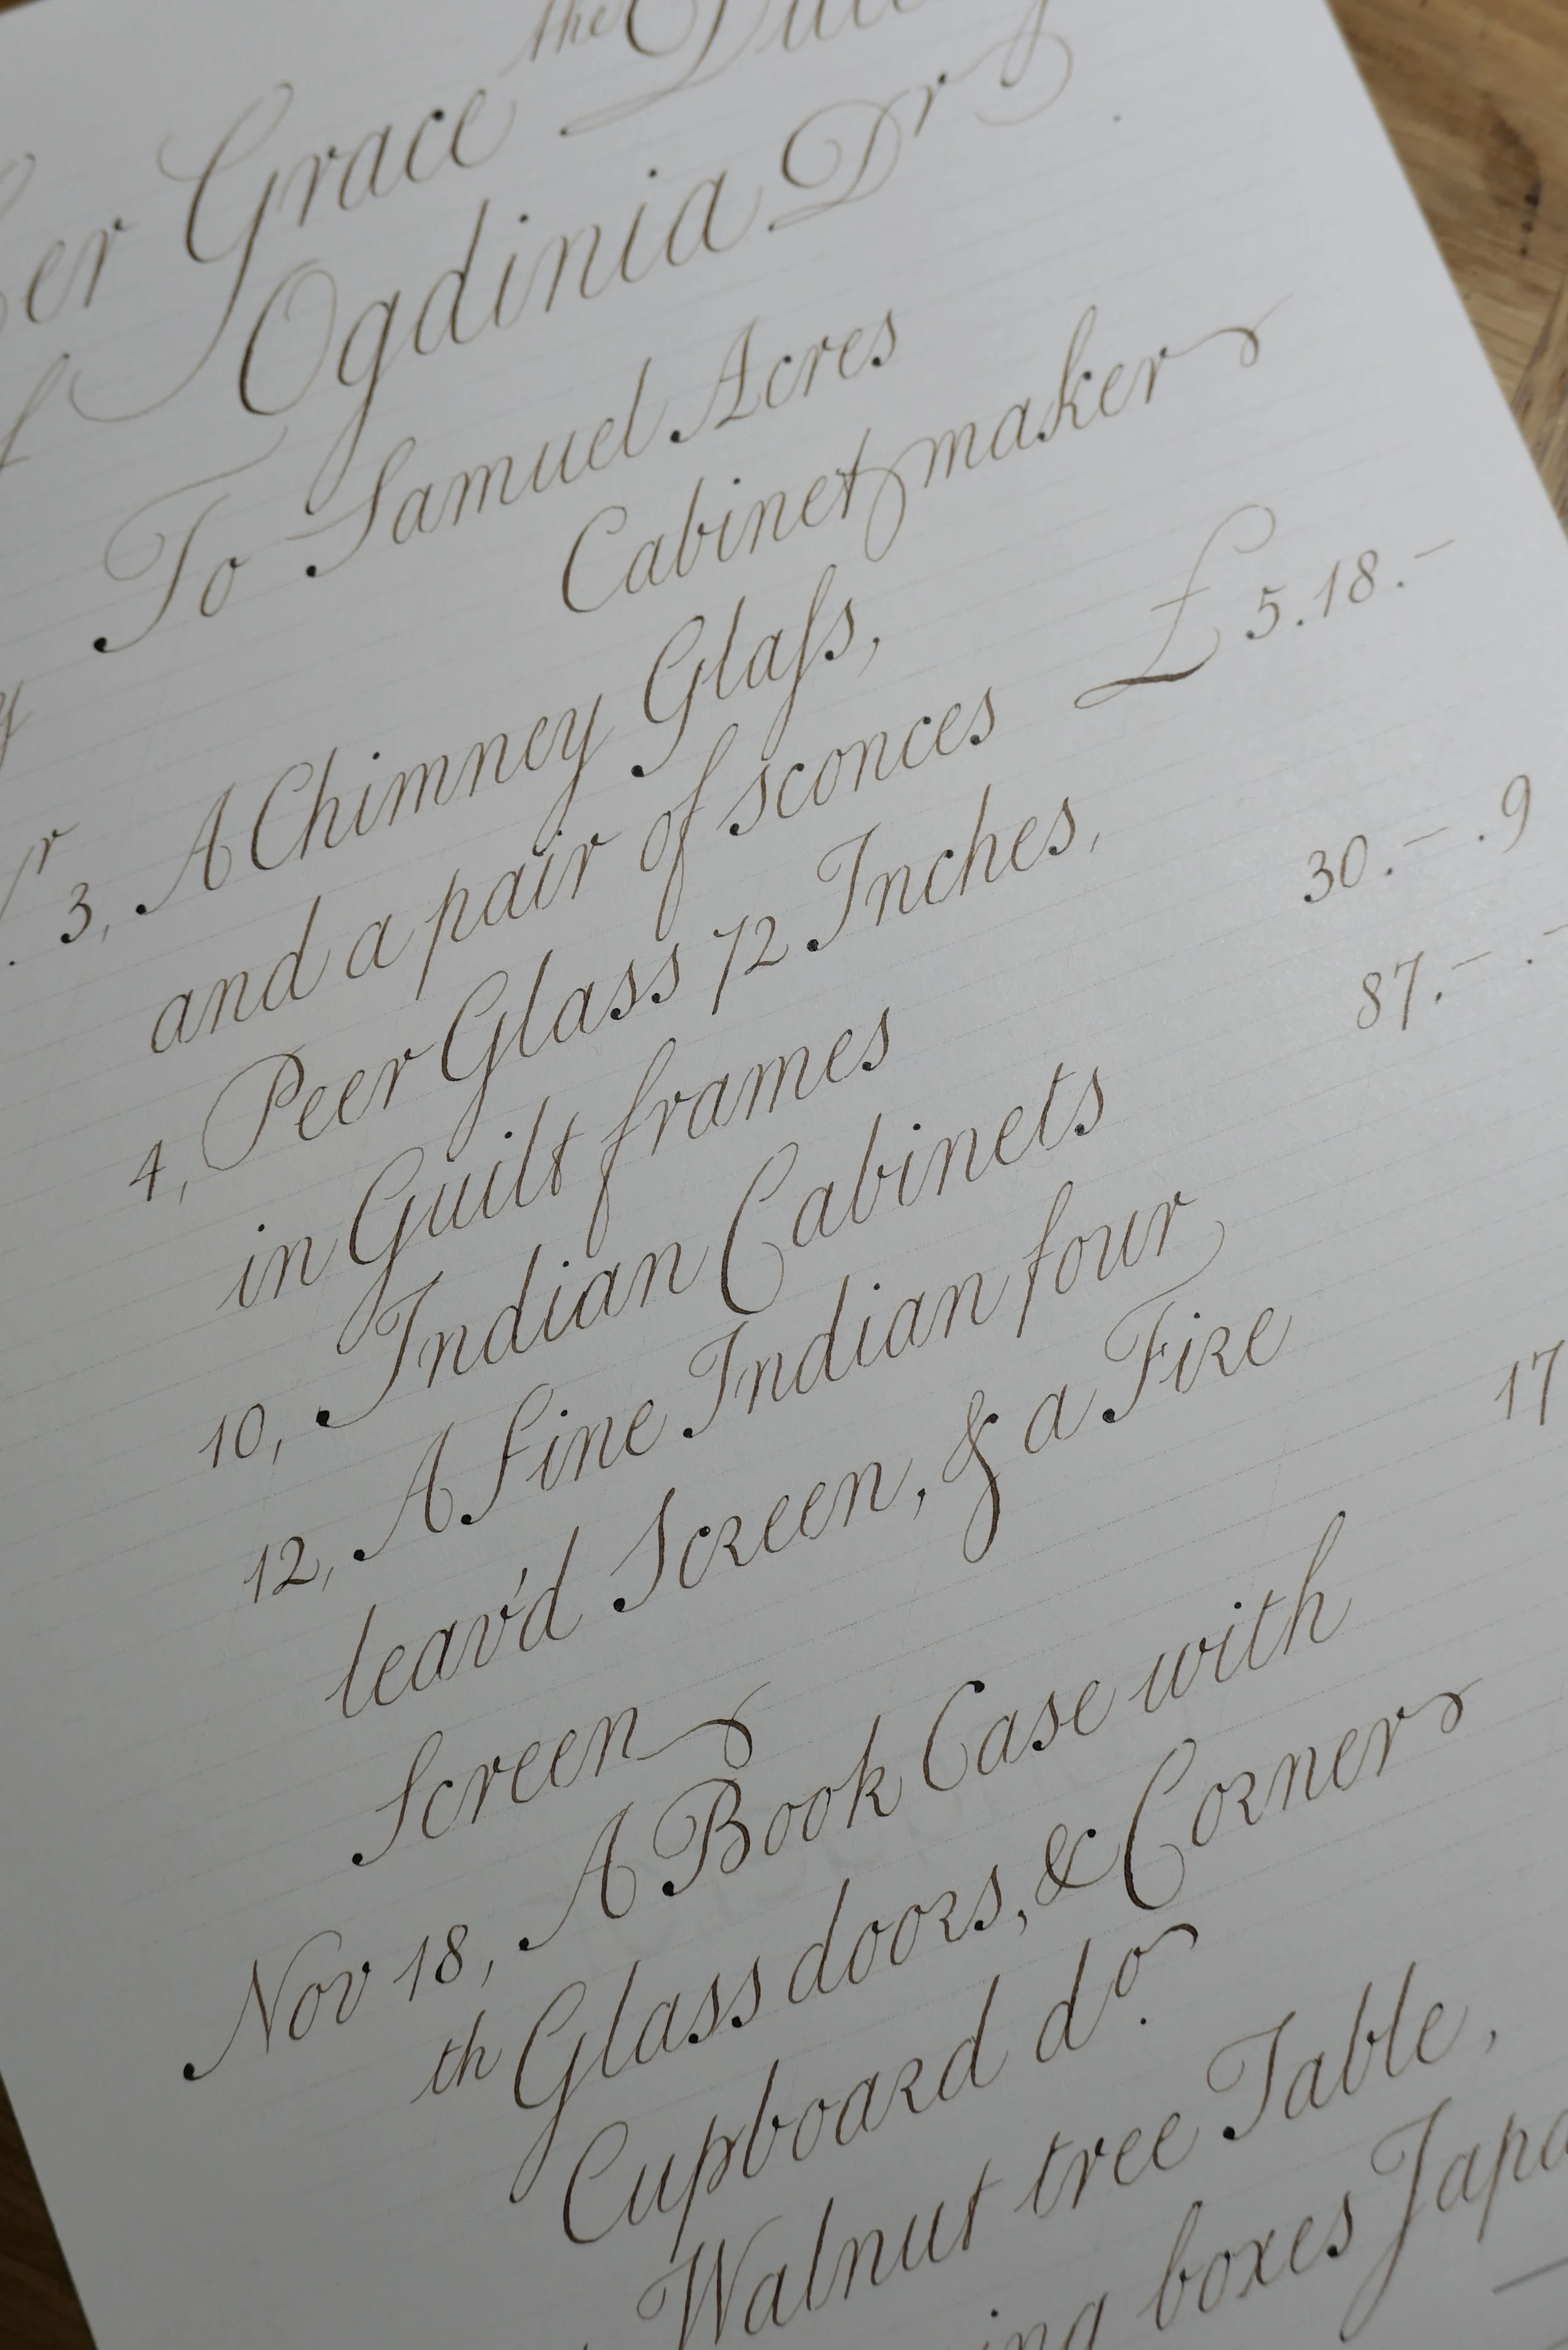 the
Grace
Ogdinia Dr
To Samuel Acres
Cabinet maker
3, A Chimney Glaſs,
and a pair of sconces £ 5.18.–
4, Peer Glass 72 Inches,
in Guilt frames 30.–.9
10, Indian Cabinets 87.–.–
12, A fine Indian four
leav'd Screen, & a Fire
Screen 17
Nov 18, A Book Case with
th Glass doors, & Corner
Cupboard do.
Walnut tree Table,
boxes